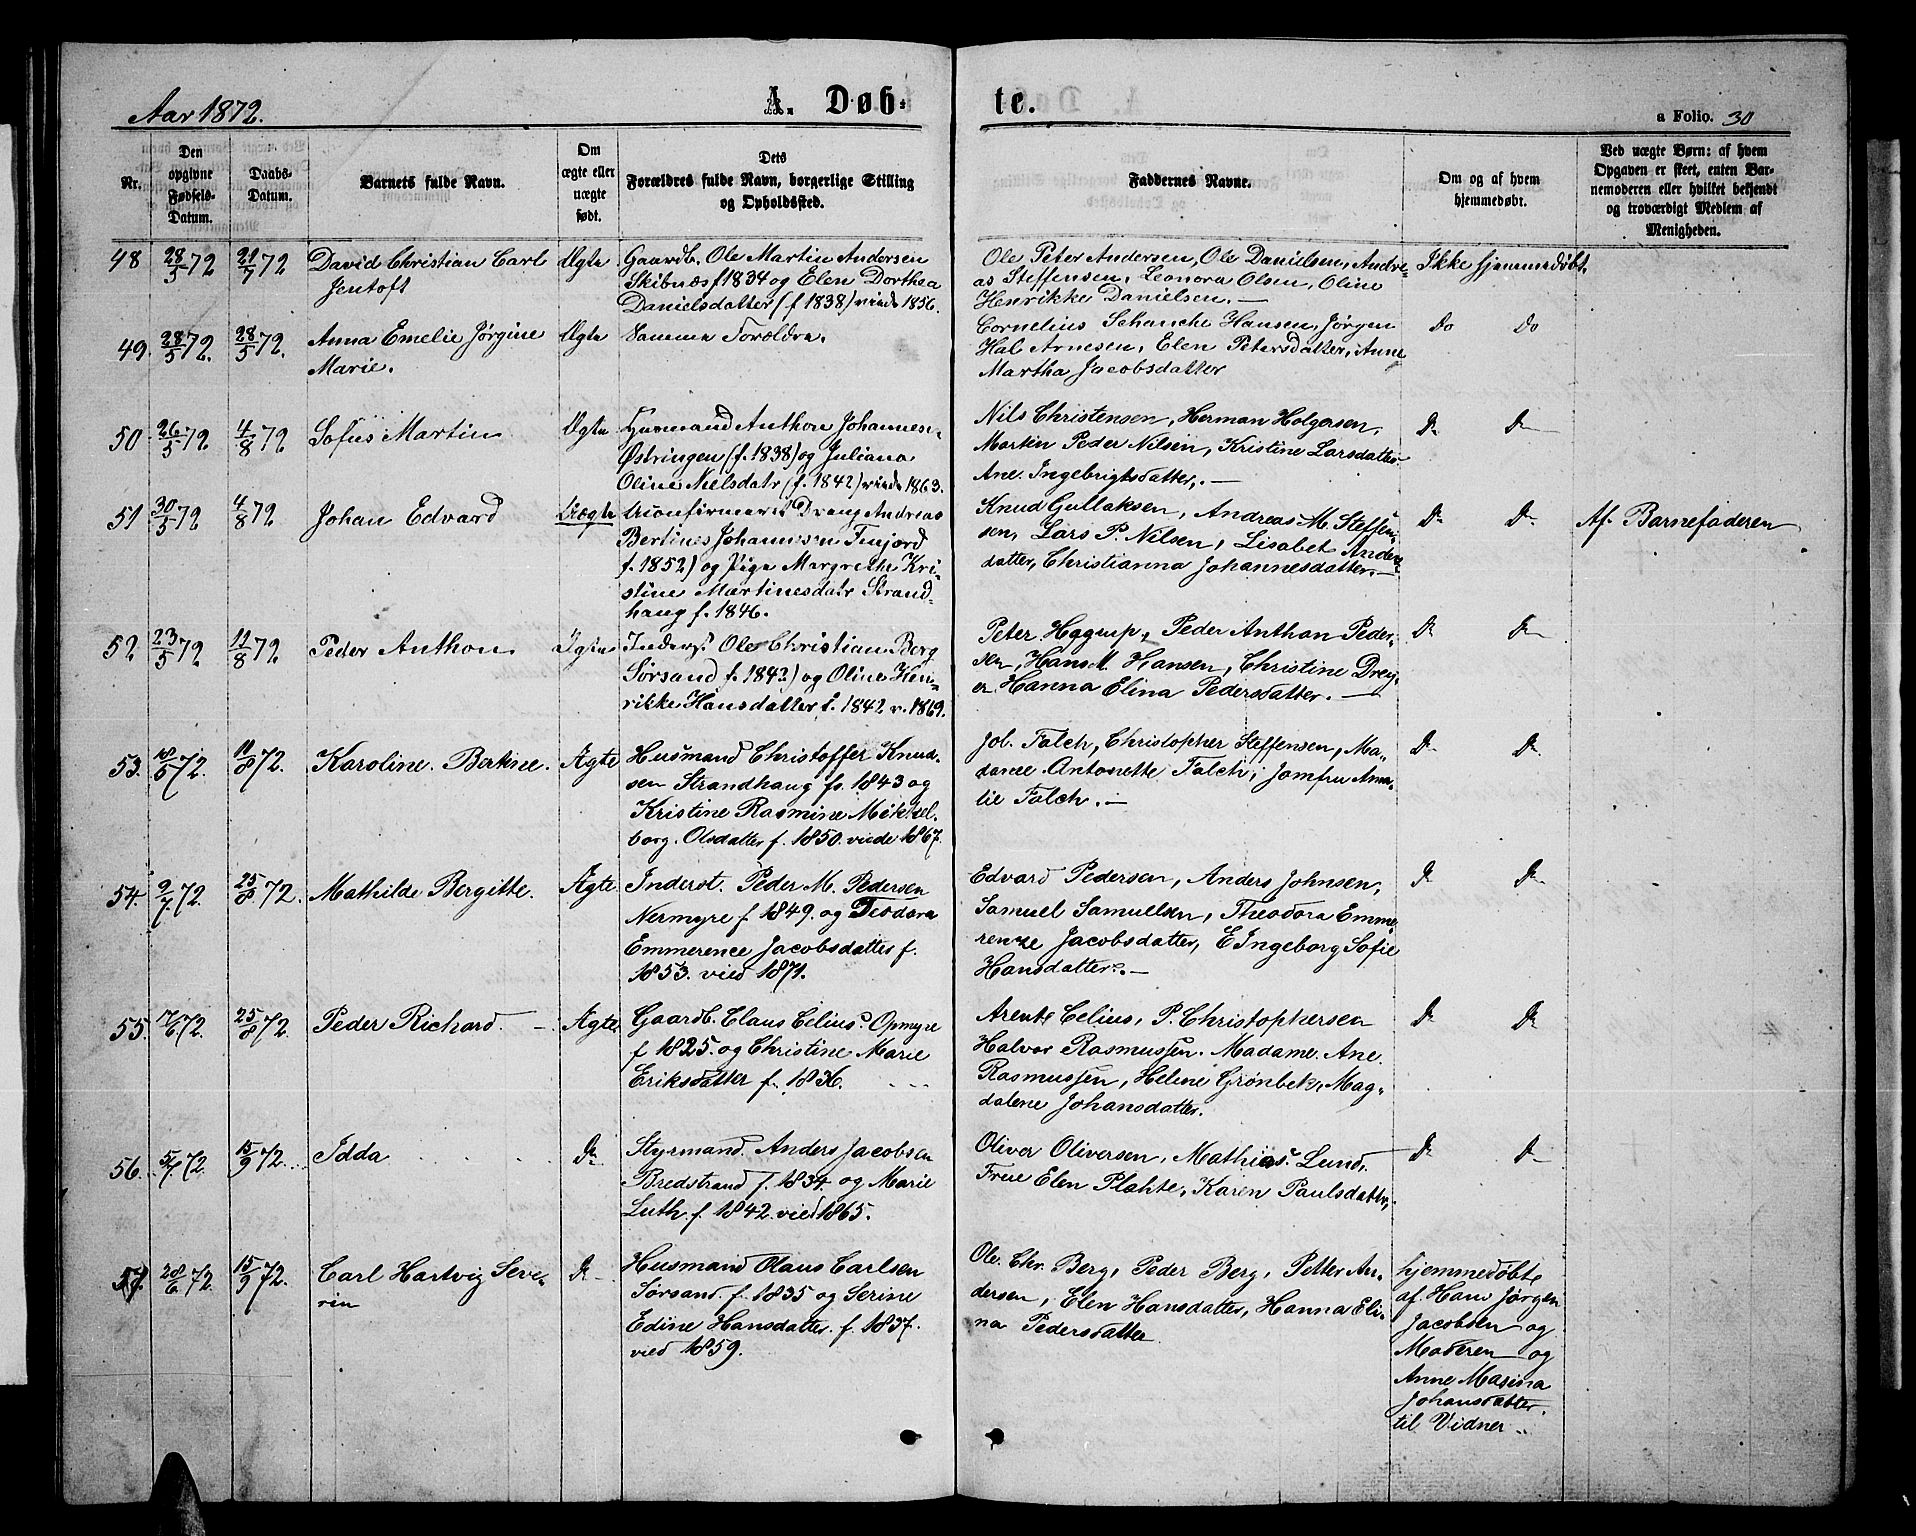 Aar 1872.
A. Døb-
te.
a Folio. 30
Nr.
Den
opgivne
Fødsels-
Datum.
Daabs-
Datum.
Barnets fulde Navn.
Om
ægte eller
uægte
født.
Dets
Forældres fulde Navn, borgerlige Stilling
og Opholdssted.
Faddernes Navne.
Om og af hvem
hjemmedøbt.
Ved uægte Børn: af hvem
Opgaven er skeet, enten Bar-
nemoderen eller hvilket bekjendt
og troværdigt Medlem af
Menigheden.
48 28/5 72 21/7 72
David Christian Carl
Jentoft
Ægte
Gaardb. Ole Martin Andersen
Skibnæs f 1834 og Elen Dorthea
Danielsdatter (f 1838) viede 1856.
Ole Peter Andersen, Ole Danielsen, Andre-
as Steffensen, Leonora Olsen, Oline
Henrikke Danielsen.
Ikke hjemmedøbt.
49. 28/5 72. 28/5 72.
Anna Emelie Jørgine
Marie.
Ægte
Samme Forældre.
Cornelius Schanche Hansen, Jørgen
Hal Arnesen, Elen Petersdatter, Anne
Martha Jacobsdatter
Do Do
50. 26/5 72 4/8 72
Sofus Martin
Ægte
Husmand Anthon Johannes-
Østringen (f. 1838) og Juliana
Oline Nielsdatr (f. 1842) viede 1863.
Nils Christensen, Herman Holgersen,
Martin Peder Nilsen, Kristine Larsdatter
Ane Ingebrigtsdatter,
Do Do
51. 30/5 72 4/8 72
Johan Edvard
Uægte
Uconfirmeret Dreng Andreas
Bertines Johannesen Finjord
f. 1852) og Pige Margrethe Kri-
stine Martinesdatr Strand-
haug f. 1846.
Knud Gullaksen, Andreas M. Steffen-
sen, Lars P. Nilsen, Lisabet Anders-
datter, Christianna Johannesdatter.
Do Do
Af Barnefaderen
52 23/5 72 11/8 72
Peder Anthon
Ægte
Inderst Ole Christian Berg
Sørsand f. 1842) og Oline Hen-
rikke Hansdatter f. 1842 v. 1869.
Peter Hggrup, Peder Anthon Peder-
sen, Hans M. Hansen, Christine Drey-
er Hanna Elina Pedersdatter.
Do Do
53. 18/5 72. 11/8 72.
Karoline. Bertine.
Ægte
Husmand Christoffer Knud-
sen Strandhaug fs. 1843 og
Kristine Rasmine Mikkel-
borg. Olsdatter f. 1850. viede 1867.
Job. Falch, Christopher Steffensen, Ma-
dame Antonette Falch, Jomfru Ama-
lie Falch.
Do Do
54. 9/7. 72. 25/8 72.
Mathilde Bergitte.
Ægte
Inderst. Peder M. Pedersen
Nermyre f. 1849. og Teodora
Emmerence Jacobsdatter f.
1853. vied 1871.
Edvard Pedersen, Anders Johnsen,
Samuel Samuelsen, Theodora Emme-
renze Jacobsdatter, E Ingeborg Sofie
Hansdatter.
Do Do
55. 17/6 72. 25/8 72.
Peder Richard.
Ægte
Gaardb. Claus Celius. Opmyre
f 1825. og Christine Marie
Eriksdatter f. 1836.
Arent Celius, P. Christophersen
Halvor Rasmussen. Madame. Ane.
Rasmussen, Heline Grønbek, Mag-
dalene Johansdatter.
Do Do
56. 5/7 72. 15/9 72.
Idda
Do
Styrmand. Anders Jacobsen
Bredstrand f. 1834 og Marie
Luth f. 1842. vied 1865.
Oliver Oliversen, Mathias. Lund,
Frue Elen Plahte, Karen Paulsdatter,
Do Do
57. 28/6 72. 15/9 72.
Carl Hartvig Seve-
rin
Do
Husmand Olaus Carlsen
Sørsand. f. 1835 og Serine
Edine Hansdatter. f. 1837.
vied 1859.
Ole. Chr. Berg, Peder Berg, Petter An-
dersen, Elen Hansdatter, Hanna Eli-
na Pedersdatter
hjemmedøbt
af Hans Jørgen
Jacobsen og
Moderen og
Anne Masina
Johansdatter.
til Vidner